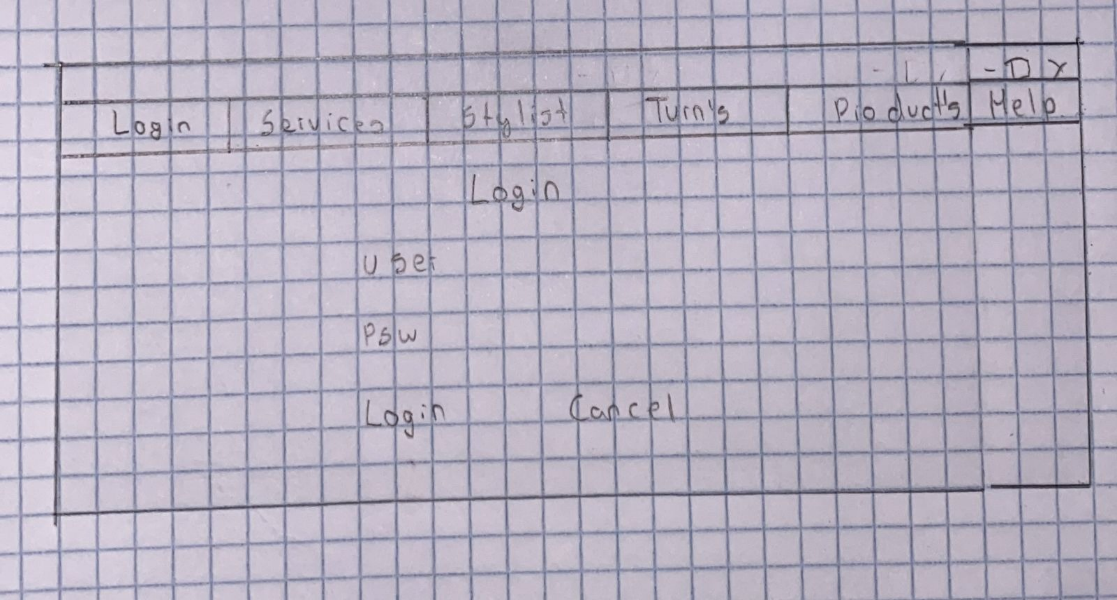 - D X
Login Services Stylist Turn's Product's Help
Login
User
Psw
Login Cancel